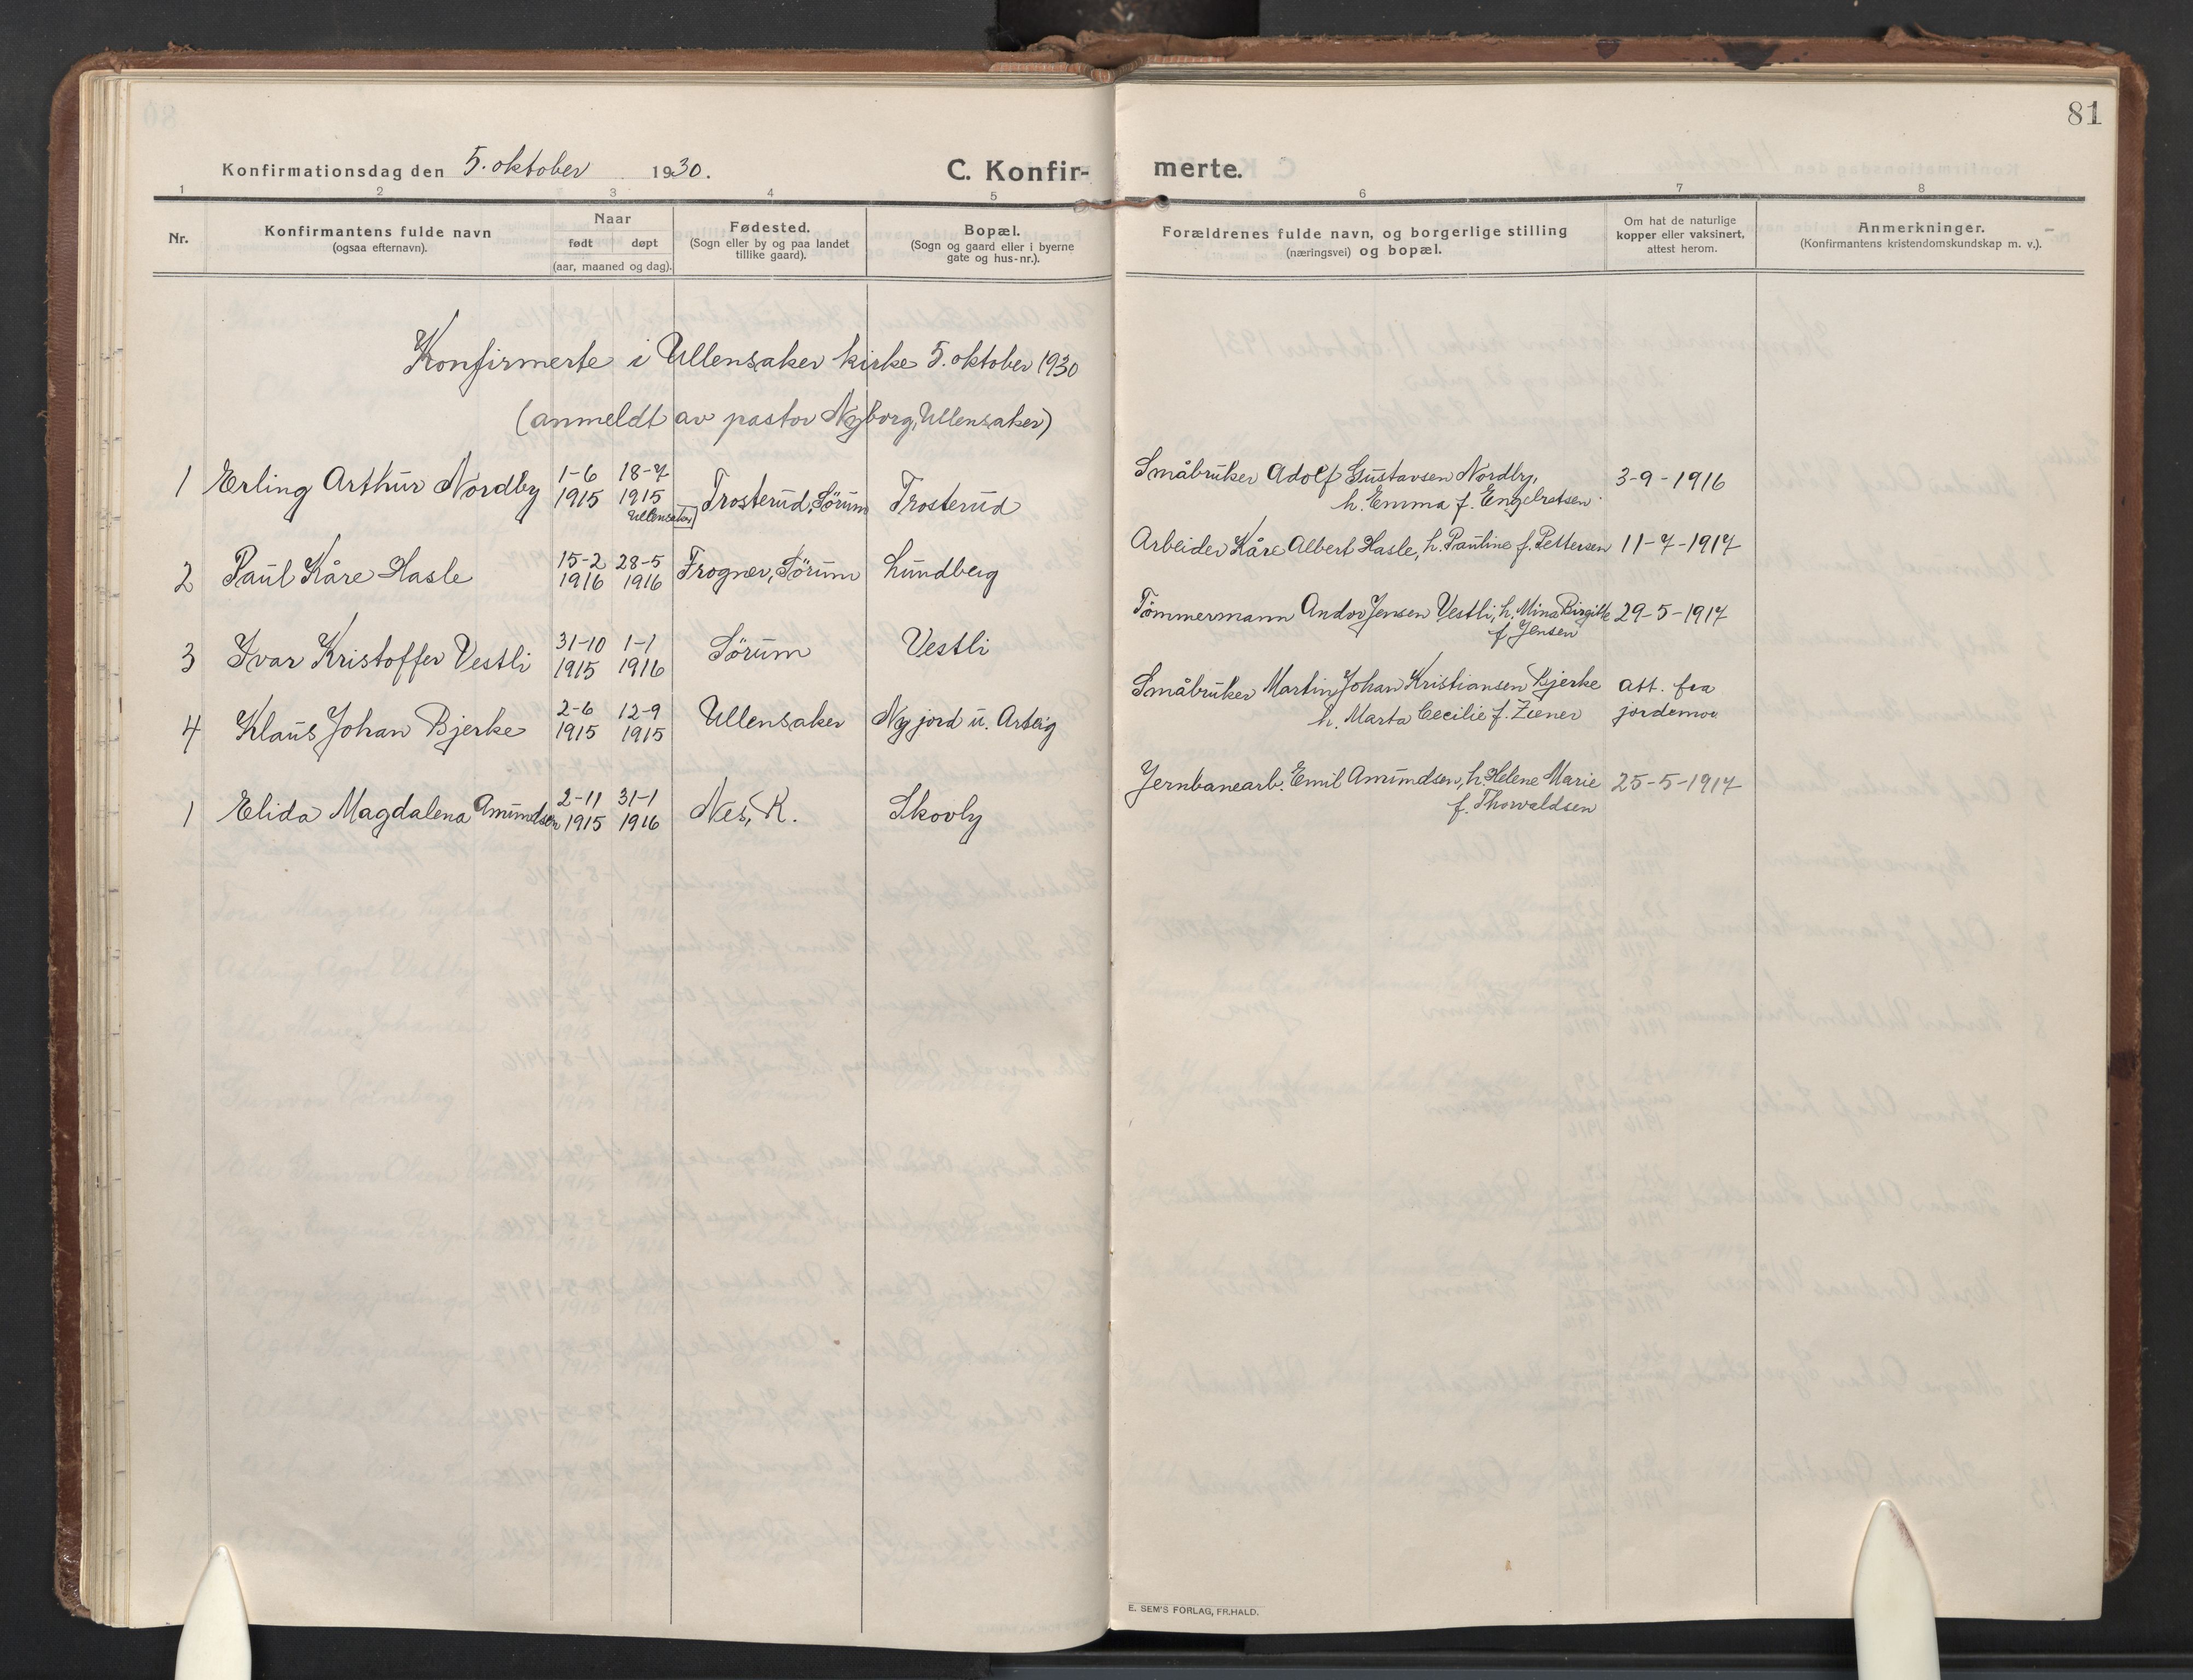 81
Konfirmationsdag den 5. oktober 1930.
C. Konfir- merte.
1 2 3 4 5 6 7 8
Nr.
Konfirmantens fulde navn
(ogsaa efternavn).
Naar
født døpt
(aar, maaned og dag).
Fødested.
(Sogn eller by og paa landet
tillike gaard).
Bopæl.
(Sogn og gaard eller i byerne
gate og hus-nr.).
Forældrenes fulde navn, og borgerlige stilling
(næringsvei) og bopæl.
Om hat de naturlige
kopper eller vaksinert,
attest herom.
Anmerkninger.
(Konfirmantens kristendomskundskap m. v.).
Konfirmerte i Ullensaker kirke 5. oktober 1930
(anmeldt av pastor Nyborg, Ullensaker)
1 Erling Arthur Nordby 1-6 1915 18-7 1915 Ullensaker Trosterud, Sörum Trosterud
Småbruker Adolf Gustavsen Nordby, 3-9-1916
h. Emma f. Engebretsen.
2 Paul Kåre Hasle 15-2 1916 28-5 1916 Frogner, Sörum Lundberg
Arbeider Kåre Albert Hasle, h. Pauline f. Pettersen 11-7-1917
3 Ivar Kristoffer Vestli 31-10 1915 1-1 1916 Sörum Vestli
Tömmermann Andor Jensen Vestli, h. Mina Birgitte 29-5-1917
f. Jensen
4 Klaus Johan Bjerke 2-6 1915 12-9 1915 Ullensaker Nyjord u. Arteig
Småbruker Martin Johan Kristiansen Bjerke att. fra
h. Marta Cecilie f. Zener jordemor
1 Elida Magdalena Amundsen 2-11 1915 31-1 1916 Nes, R. Skovly
Jernbanearb. Emil Amundsen, h. Helene Marie 25-5-1917
f. Thorvaldsen
E. SEM'S FORLAG, FR.HALD.